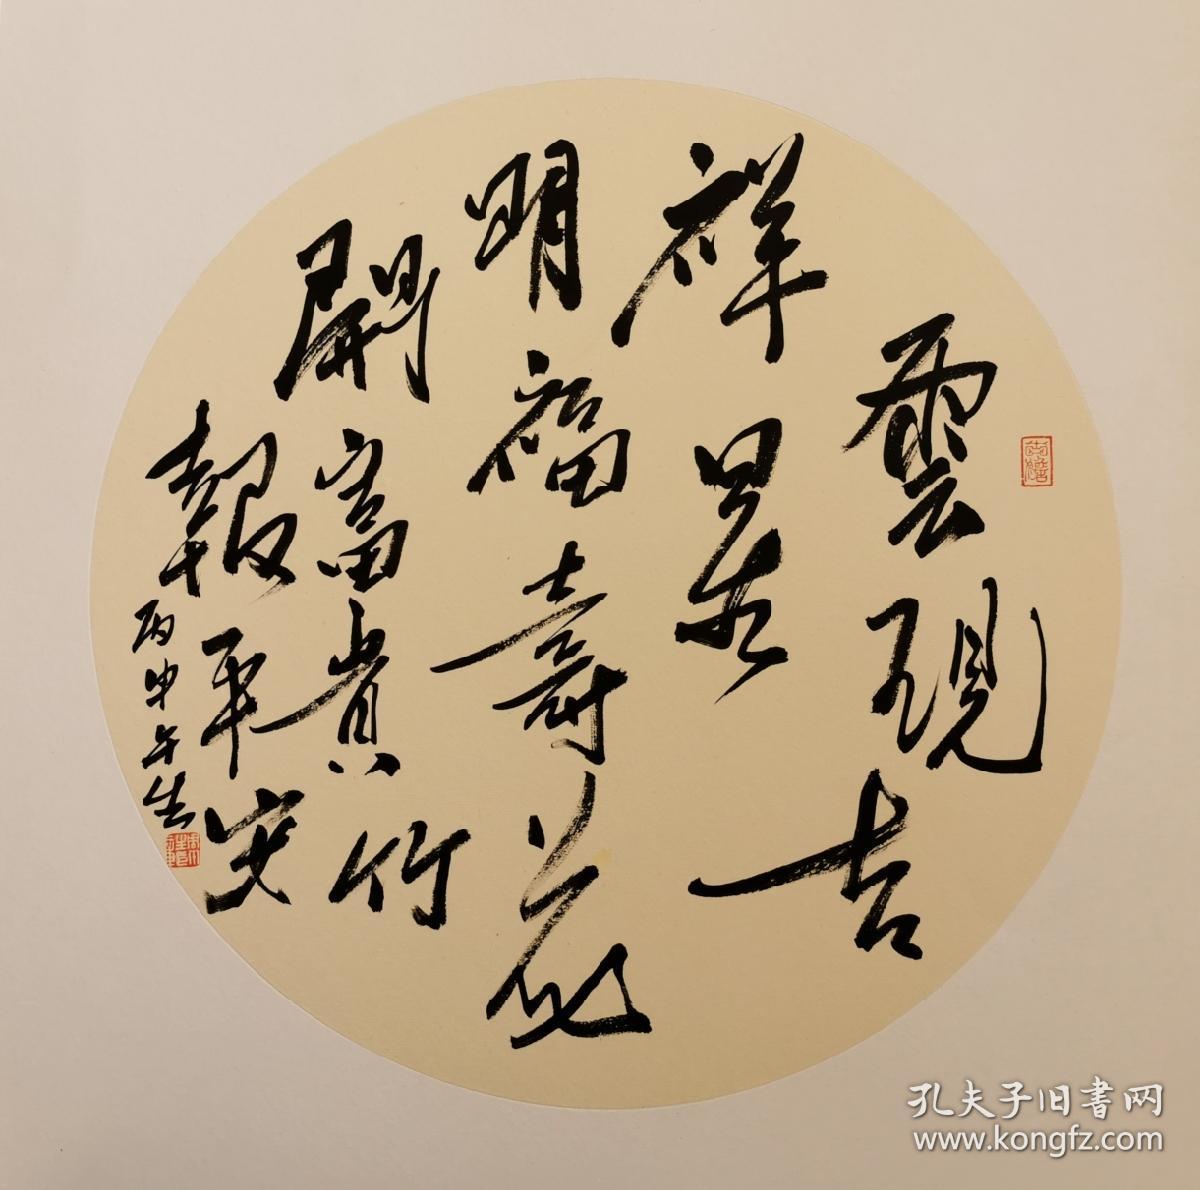 雲現吉
祥星
明福壽花
開富貴竹
報平安
丙申午生
孔夫子旧書网
www.kongfz.com